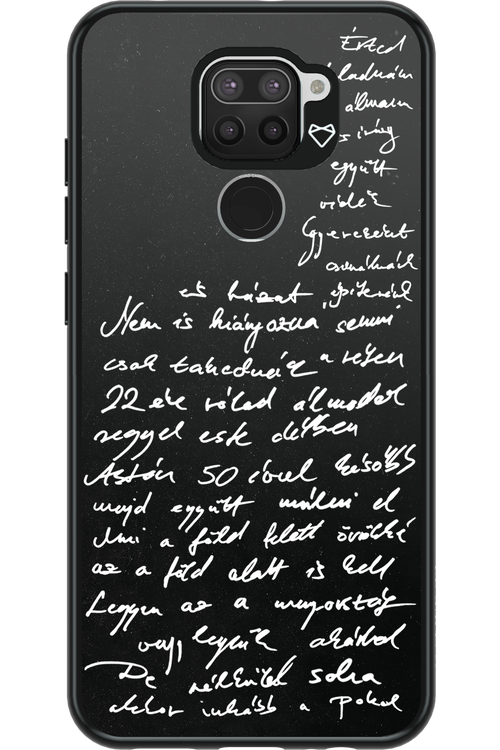 Érted
feladnám
álmaim
s irány
együtt
vidék
Gyerekeket
csinálnék
és házat építenék
Nem is hiányozna semmi
csak takednék a réten
22 éve rólad álmodok
reggel este délben
Aztán 50 évvel később
majd együtt múlni el
Ami a föld felett örökké
az a föld alatt is kell
Legyen az a mennyország
vagy legyünk akárhol
De nélküled soha
akkor inkább a pokol